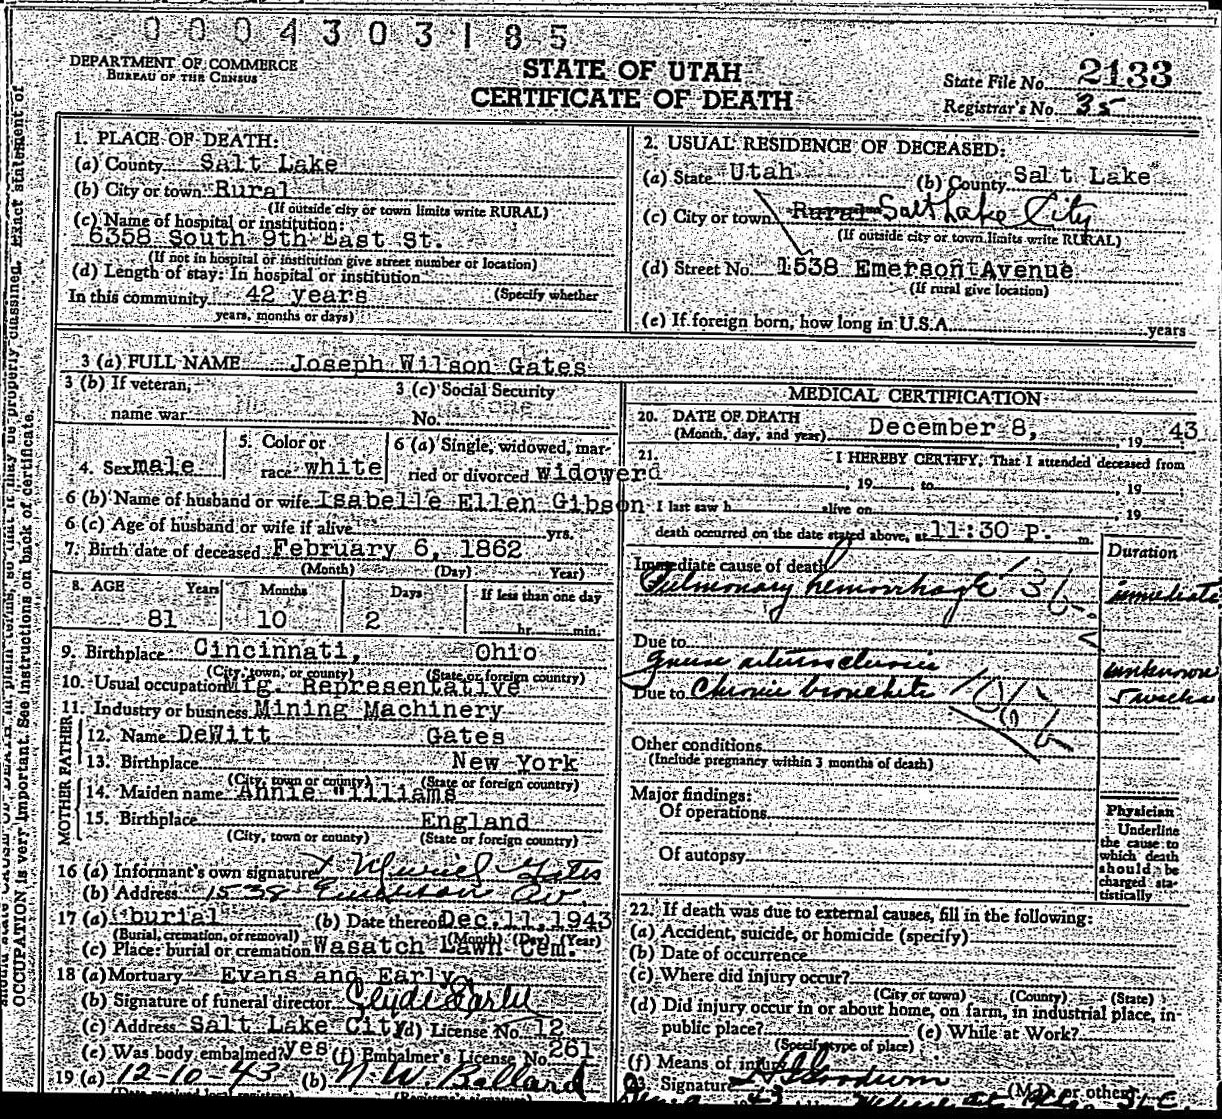 0004303185
DEPARTMENT OF COMMERCE
BUREAU OF THE CENSUS
STATE OF UTAH
CERTIFICATE OF DEATH
State File No. 2133
Registrar's No. 35
1. PLACE OF DEATH:
(a) County Salt Lake
(b) City or town Rural
(If outside city or town limits write RURAL)
(c) Name of hospital or institution:
6358 South 9th East St.
(If not in hospital or institution give street number or location)
(d) Length of stay: In hospital or institution
In this community 42 years (Specify whether
years, months or days)
2. USUAL RESIDENCE OF DECEASED:
(a) State Utah (b) County Salt Lake
(c) City or town Rural Salt Lake City
(If outside city or town limits write RURAL)
(d) Street No. 1538 Emerson Avenue
(If rural give location)
(e) If foreign born, how long in U.S.A. years
3 (a) FULL NAME Joseph Wilson Gates
3 (b) If veteran, 3 (c) Social Security
name war No.
4. Sex male 5. Color or race white
6 (a) Single, widowed, mar-
ried or divorced widowerd
6 (b) Name of husband or wife Isabelle Ellen Gibson
6 (c) Age of husband or wife if alive yrs.
7. Birth date of deceased February 6, 1862
(Month) (Day) Year)
8. AGE Years Months Days If less than one day
81 10 2 hr. min.
9. Birthplace Cincinnati, Ohio
(City, town, or county) (State or foreign country)
10. Usual occupation Mfg. Representative
11. Industry or business Mining Machinery
FATHER
12. Name DeWitt Gates
13. Birthplace New York
(City, town or county) (State or foreign country)
MOTHER
14. Maiden name Annie Williams
15. Birthplace England
(City, town or county) (State or foreign country)
16 (a) Informant's own signature x Muriel Gates
(b) Address 1538 Emerson Av.
17 (a) burial (b) Date thereof Dec. 11, 1943
(Burial, cremation, or removal) (Month) (Day) (Year)
(c) Place: burial or cremation Wasatch Lawn Cem.
18 (a) Mortuary Evans and Early
(b) Signature of funeral director Clyde Earle
(c) Address Salt Lake City (d) License No. 12
(e) Was body embalmed? yes (f) Embalmer's License No. 261
19 (a) 12-10-43 (b) N. W. Ballard
MEDICAL CERTIFICATION
20. DATE OF DEATH
(Month, day, and year) December 8, 19 43
21. I HEREBY CERTIFY, That I attended deceased from
, 19 , to , 19
I last saw h alive on , 19
death occurred on the date stated above, at 11:30 P. m.
Duration
Immediate cause of death
Pulmonary hemorrhage immediate
Due to
unknown
Due to Chronic bronchitis 5 weeks
Other conditions
(Include pregnancy within 3 months of death)
Major findings:
Of operations
Of autopsy
Physician
Underline
the cause to
which death
should be
charged sta-
tistically
22. If death was due to external causes, fill in the following:
(a) Accident, suicide, or homicide (specify)
(b) Date of occurrence
(c) Where did injury occur?
(City or town) (County) (State)
(d) Did injury occur in or about home, on farm, in industrial place, in
public place? (e) While at Work?
(Specify type of place)
(f) Means of injury
23. Signature Goodwin (M.D. or other)
OCCUPATION is very important. See instructions on back of certificate.